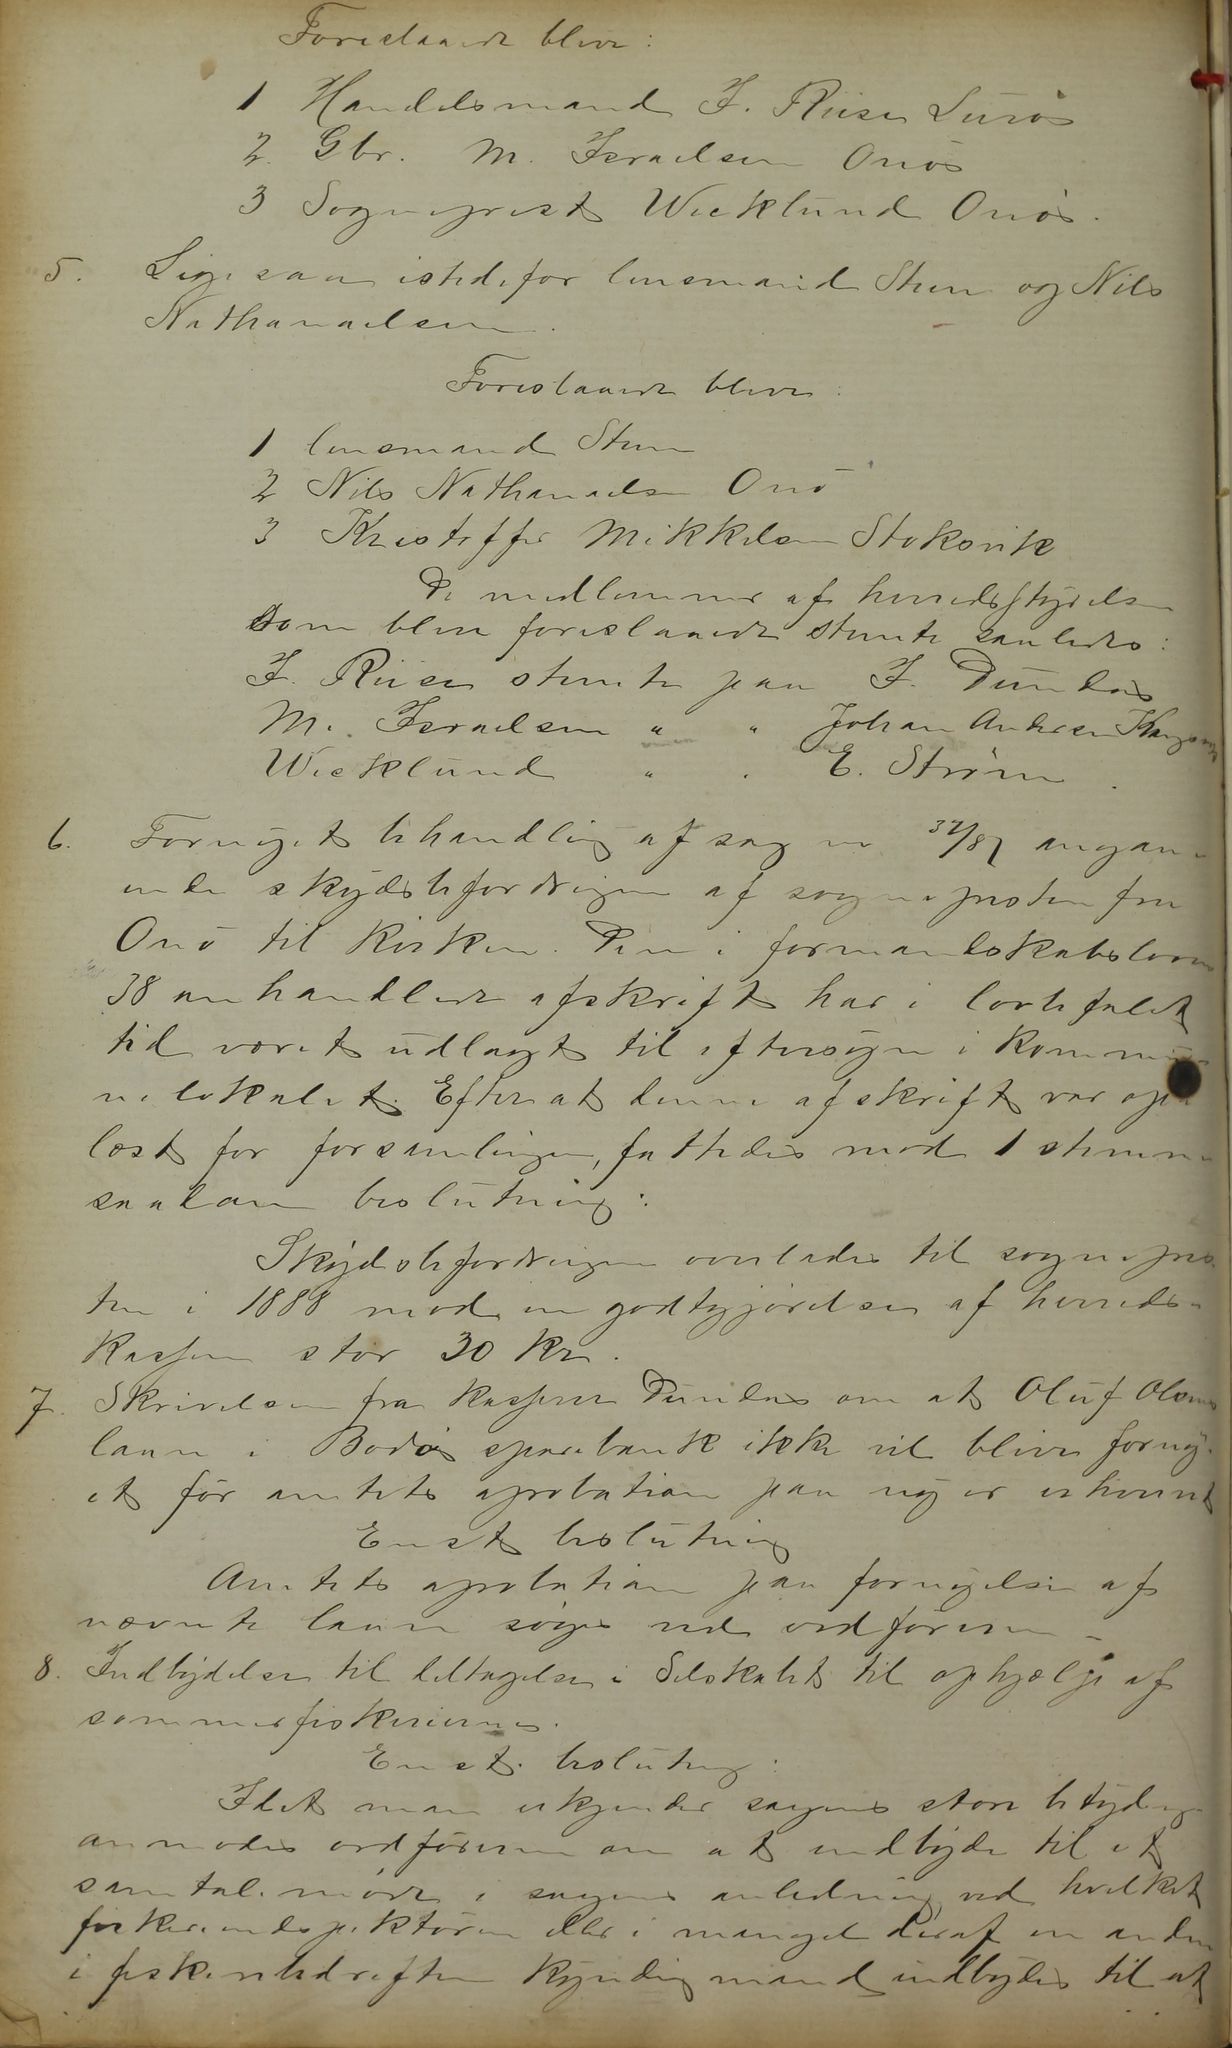 Foreslaaede bleve:
1 Handelsmand J. Riise Lurø
2. Gbr. M. Israelsen Onøs
3 Sogneprest Wicklund Onøs.
5. Ligesaa istedefor lensmand Steen og Nils
Nathanaelsen.
Foreslaaede bleve:
1 lensmand Steen
2 Nils Nathanaelsen Onø
3 Kristoffer Mikkelsen Stoksvik
De medlemmer af herredsstyrelsen
som bleve foreslaaede stemte saaledes:
J. Riise stemte paa J. Dundas
M. Israelsen " " Johan Andersen
Wicklund " " E. Strøm.
6. Fornyet behandling af sag no 37/87 angaa-
ende skydsbefordringen af sognepresten fra
Onø til kirken. Den i formandskabsloven
38 omhandlede afskrift har i lovbefalet
tid været udlagt til eftersyn i kommu-
nelokalet. Efterat denne afskrift var op-
læst for forsamlingen, fattedes mod 1 stemme
saadan beslutning:
Skydsbefordringen overlades til sognepres-
ten i 1888 mod en godtgjørelse af herreds-
kassen stor 30 kr.
7. Skrivelse fra kasserer Dundas om at Oluf Olsens
laan i Bodø sparebank ikke vil blive forny-
et før amtets aprobation paa ny er erhvervet
Enst beslutning
Amtets aprobation paa fornyelse af
nævnte laan søges ved ordføreren -
8. Indbydelse til deltagelse i Selskabet til ophjælp af
sommerfiskerierne.
Enst. beslutning:
Idet man erkjender sagens store betydning
anmodes ordføreren om at indbyde til et
samtalemøde i sagens anledning ved hvilket
fiskeriinspektøren eller i mangel deraf en anden
i fiskeribedriften kyndig mand indbydes til at